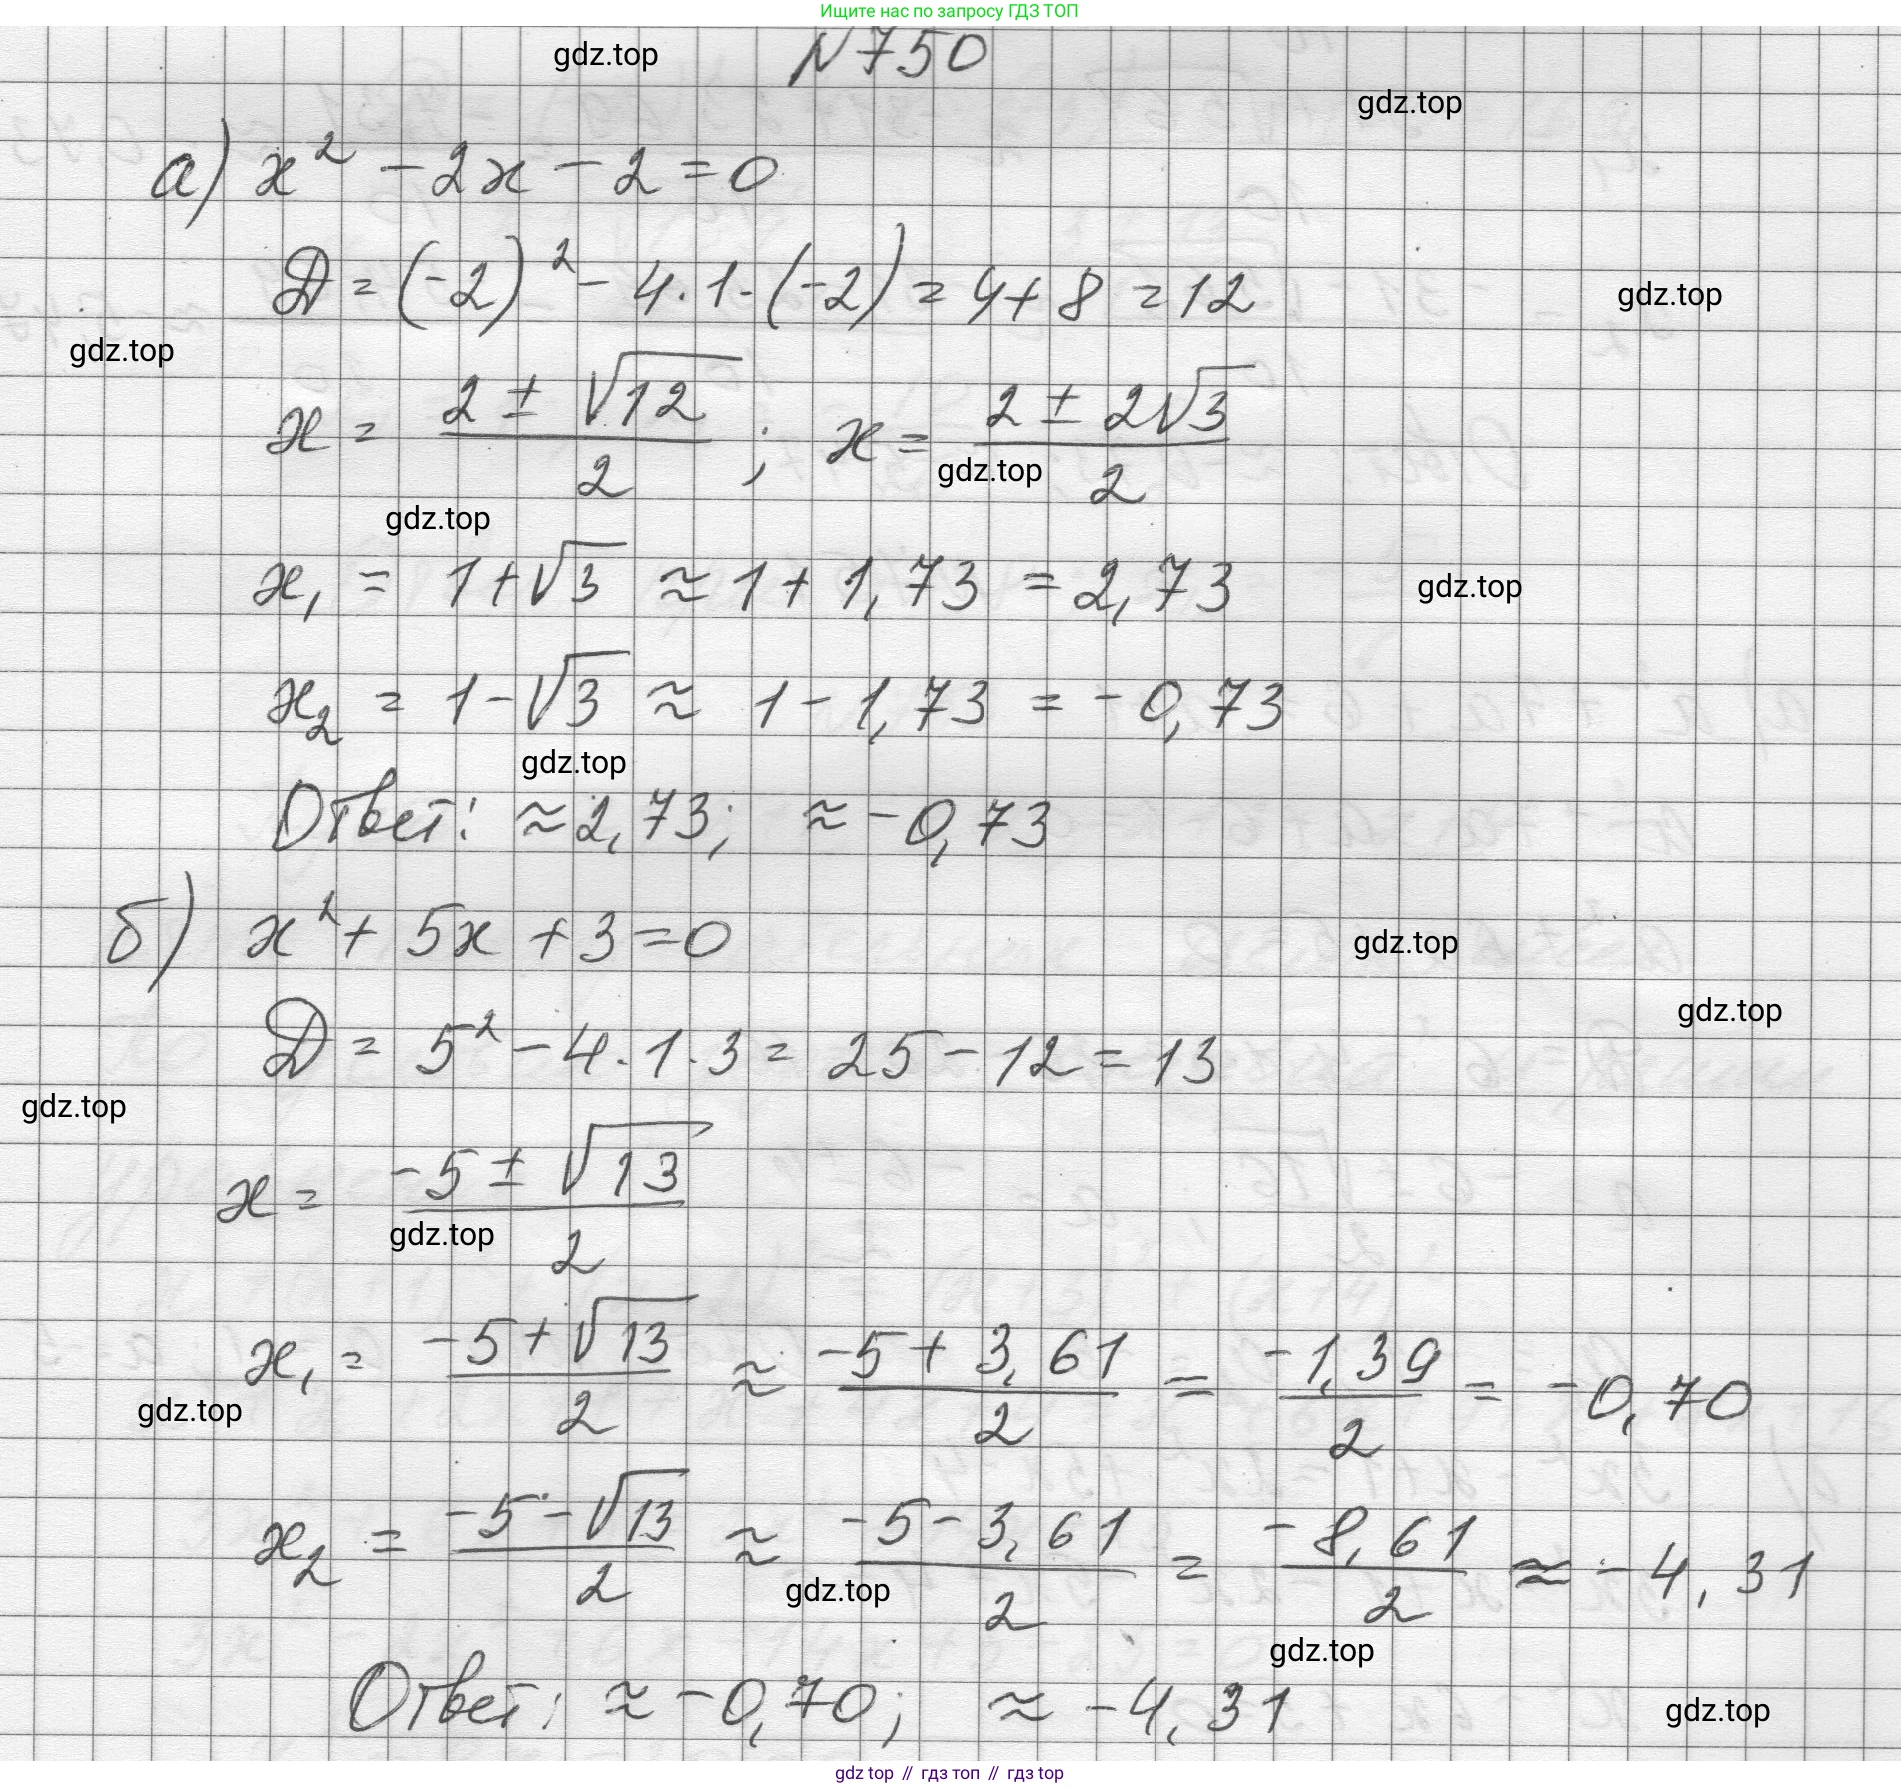 Ищите нас по запросу ГДЗ ТОП
gdz.top
N750
gdz.top
а) x² - 2x - 2 = 0
D = (-2)² - 4·1·(-2) = 4 + 8 = 12
gdz.top
gdz.top
x = (2 ± √12)/2 ; x = (2 ± 2√3)/2
gdz.top
gdz.top
x₁ = 1 + √3 ≈ 1 + 1,73 = 2,73
gdz.top
x₂ = 1 - √3 ≈ 1 - 1,73 = -0,73
gdz.top
Ответ: ≈ 2,73; ≈ -0,73
б) x² + 5x + 3 = 0
gdz.top
gdz.top
D = 5² - 4·1·3 = 25 - 12 = 13
gdz.top
x = (-5 ± √13)/2
gdz.top
x₁ = (-5 + √13)/2 ≈ (-5 + 3,61)/2 = (-1,39)/2 = -0,70
gdz.top
x₂ = (-5 - √13)/2 ≈ (-5 - 3,61)/2 = (-8,61)/2 ≈ -4,31
gdz.top
gdz.top
Ответ: ≈ -0,70; ≈ -4,31
gdz.top
gdz top // гдз топ // гдз top